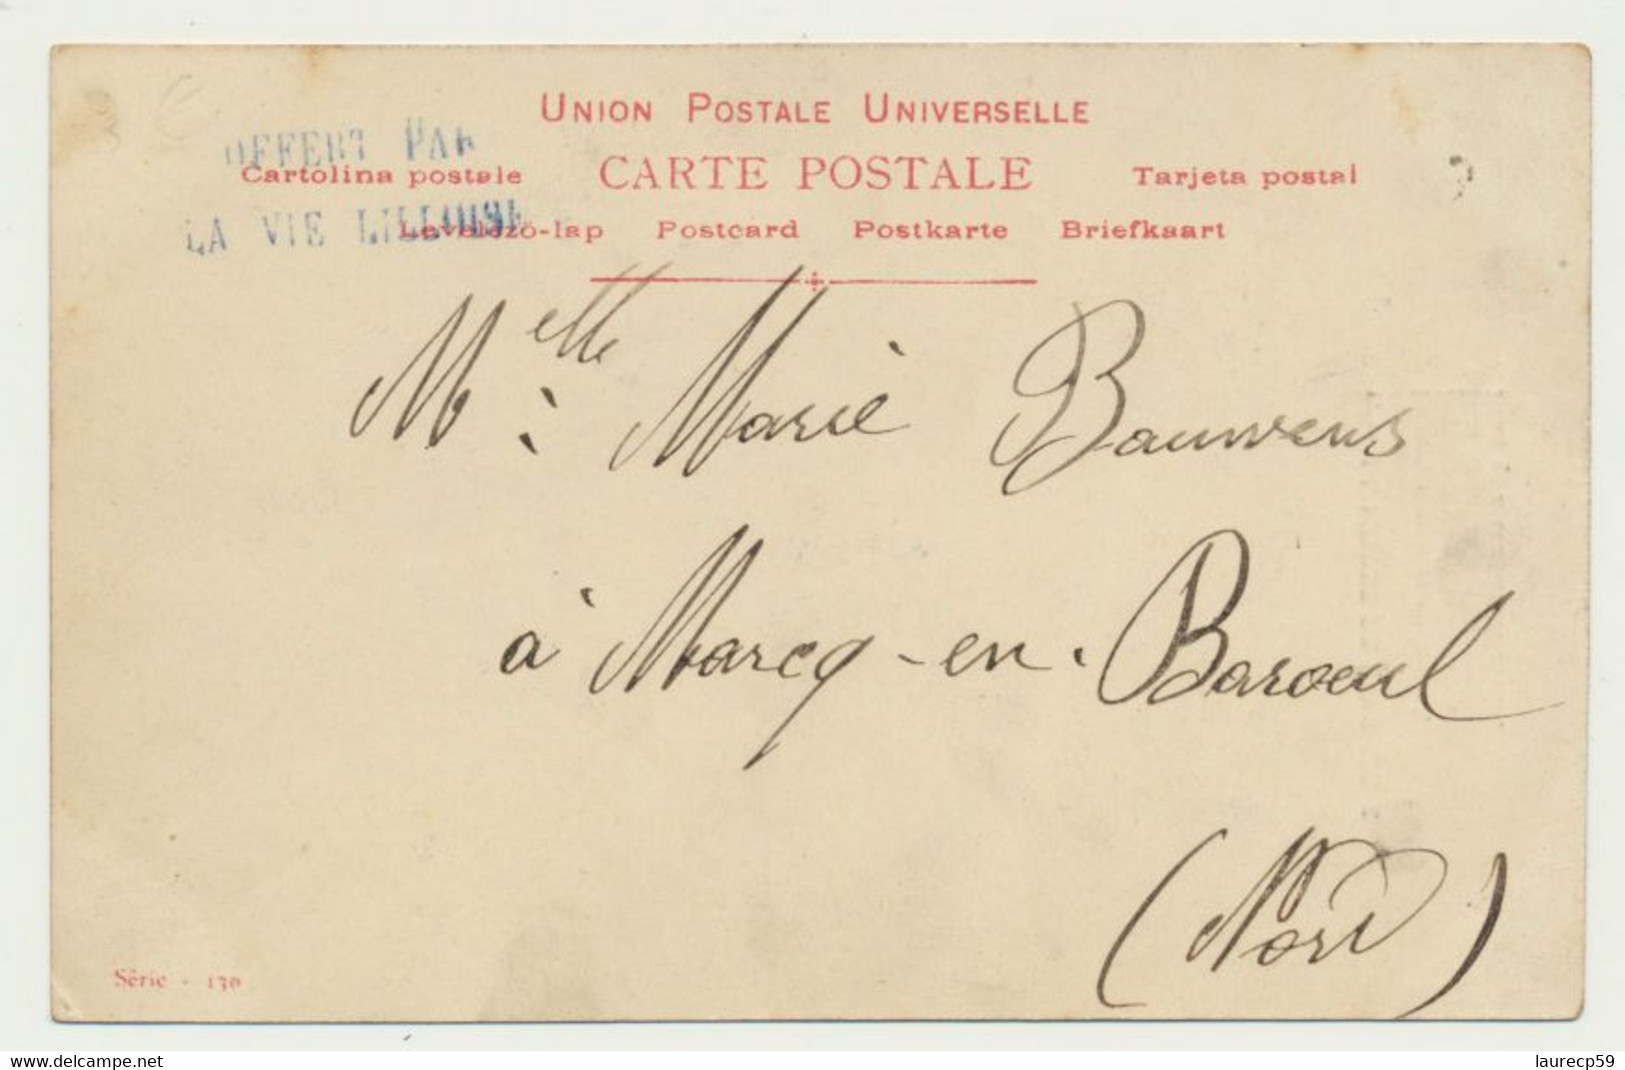 UNION POSTALE UNIVERSELLE
OFFERT PAR
Cartolina postale CARTE POSTALE Tarjeta postal
LA VIE LILLOISE
Levelezö-lap Postcard Postkarte Briefkaart
Melle Marie Bauwens
à Marcq-en-Baroeul
(Nord)
Série - 130
www.delcampe.net laurecp59